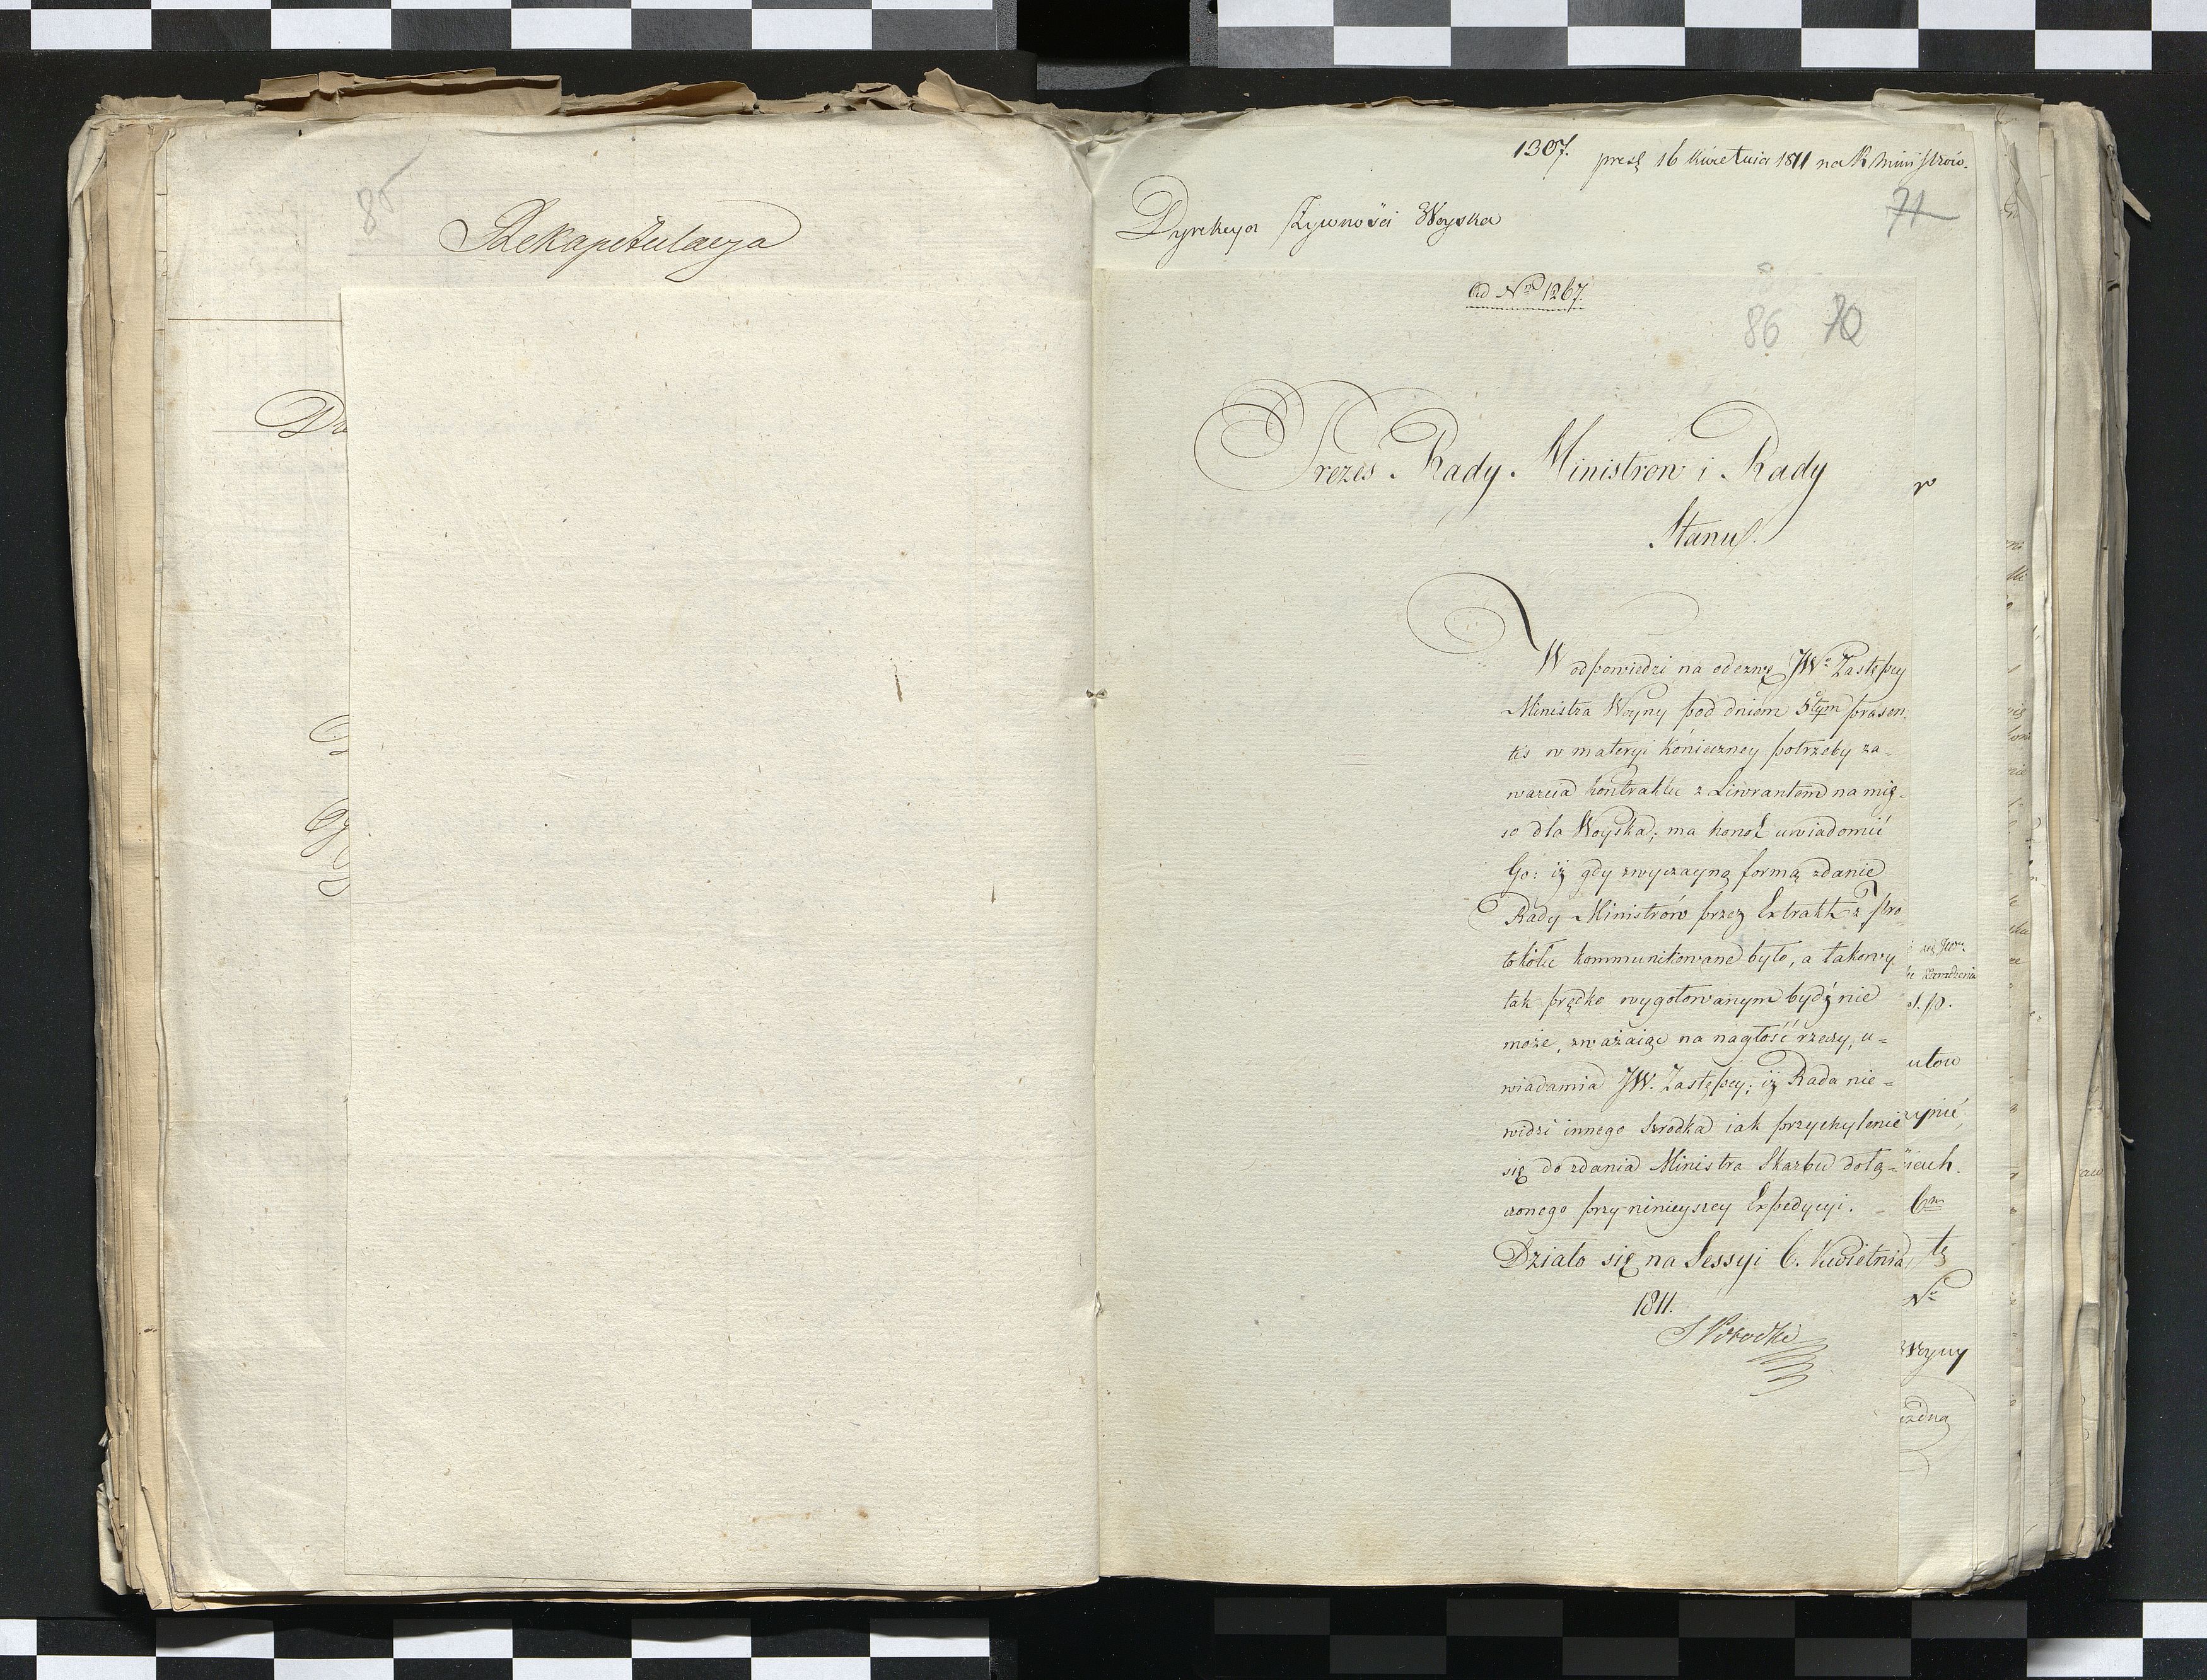 85
Rekapitulacya
1307. pres. 16 Kwietnia 1811 na R Ministrow.
71
Dyrekcya Żywności Woyska
ad Nro 1267.
86 70
Prezes Rady Ministrow i Rady
Stanu.
W odpowiedzi na odezwę JWo Zastępcy
Ministra Woyny pod dniem 5tym prasen,
tis w materyi Konieczney potrzeby za-
warcia kontraktu z Liwrantem na mię-
so dla Woyska; ma honor uwiadomić
Go: iż gdy zwyczayną formą zdanie
Rady Ministrów przez Extrakt z Pro
tokółu kommunikowane było, a takowy
tak prędko wygotowanym bydź nie
może, zważaiąc na nagłość rzeczy, u=
wiadamia JW. Zastępcy; iż Rada nie=
widzi innego Srzodka iak przychylenie
się do zdania Ministra Skarbu dołą=
czonego przy ninieyszey Expedycyi.
Działo się na Sessyi 6. Kwietnia
1811.